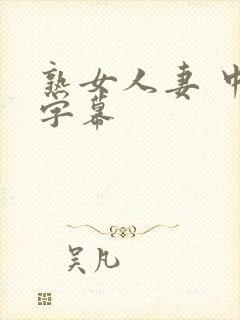 熟女人妻 中
字幕
吴凡